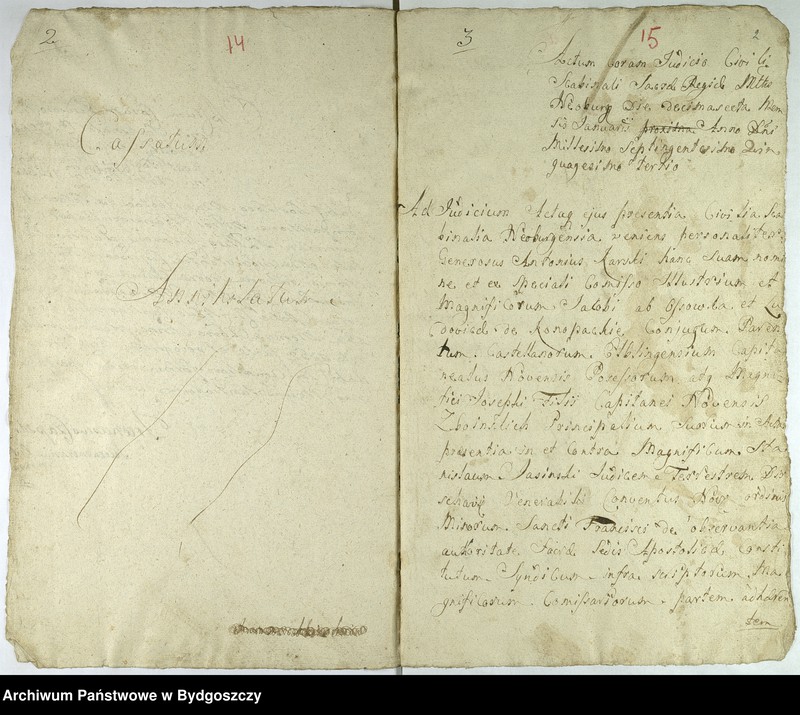 2
14
Cassatum
Annihilatum
3
15
2
Actum Coram Judicio Civili
Scabinali Sacrae Regiae Mttis
Neoburg Die decimasexta Men
sis Januarii proxima Anno Dni
Millesimo Septingentesimo Quin
quagesimo tertio
Ad Judicium Actaq ejus presentia Civilia Sca
binalia Neoburgensia veniens personaliter
Generosus Antonius Karski hanc Suam nomi
ne et ex Speciali Comisso Illustrium et
Magnificorum Jacobi ab Ossowka et Lu
dovicae de Konopackie Conjugum Paren
tum Castellanorum Elblingensium Capita
neatus Novensis Possessorum atq Magni
fici Josephi Filii Capitanei Novensis
Zboinskich Principalium Suorum in Actu
presentia in et Contra Magnificum Sta
nislaum Jasinski Judicem Terrestrem
Venerabili Conventus ordinis
Minorum Sancti Francisci de observantia
authoritate Sacrae Sedis Apostolicae Consti
tutum Syndicum infra scriptorum Ma
gnificorum Comissariorum partem adhaeren
tem
Archiwum Państwowe w Bydgoszczy